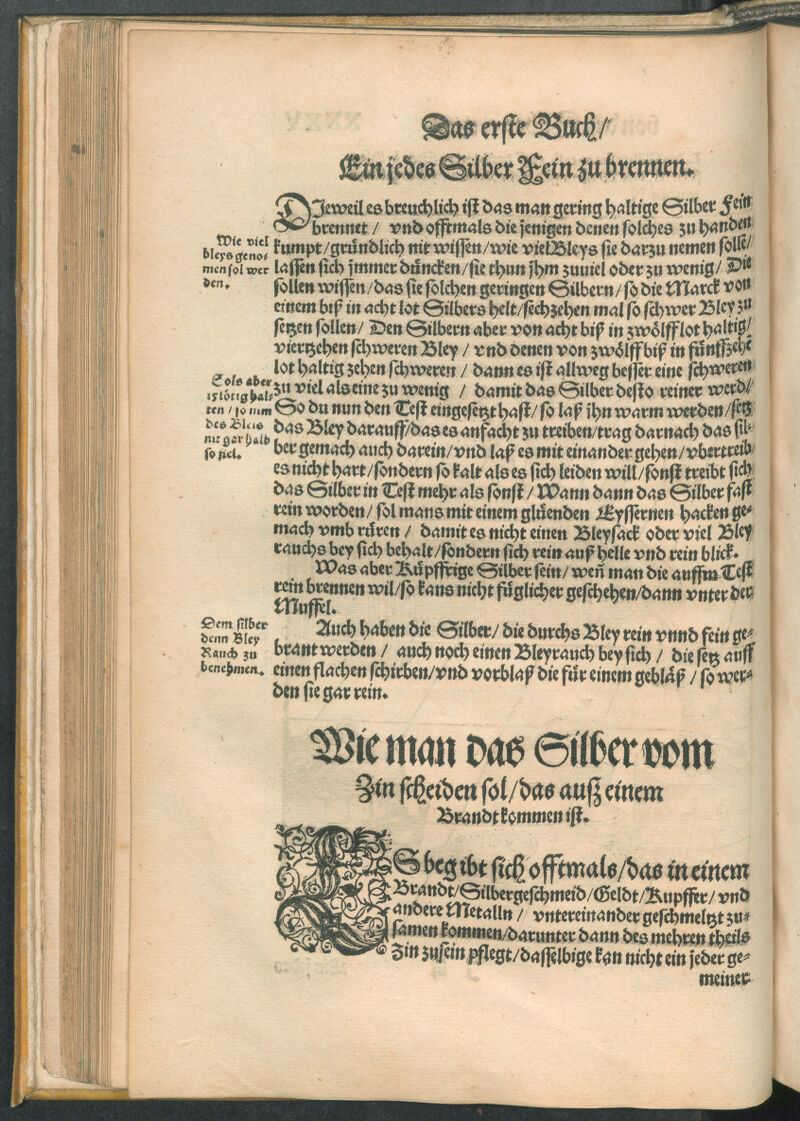 Das erste Buch/
Ein jedes Silber Fein zu brennen.
DJeweil es breuchlich ist das man gering haltige Silber Fein
brennet / vnd offtmals die jenigen denen solches zu handen
kumpt/gründlich nit wissen/wie viel Bleys sie darzu nemen solle/
lassen sich jmmer düncken/sie thun jhm zuuiel oder zu wenig/ Die
sollen wissen/das sie solchen geringen Silbern/so die Marck von
einem biß in acht lot Silbers helt/sechzehen mal so schwer Bley zu
setzen sollen/ Den Silbern aber von acht biß in zwölff lot haltig/
viertzehen schweren Bley / vnd denen von zwölff biß in fünffzehē
lot haltig zehen schweren / dann es ist allweg besser eine schweren
zu viel als eine zu wenig / damit das Silber desto reiner werd/
So du nun den Test eingesetzt hast/so laß jhn warm werden/setz
das Bley darauff/das es anfacht zu treiben/trag darnach das sil-
ber gemach auch darein/vnd laß es mit einander gehen/vbertreib
es nicht hart/sondern so kalt als es sich leiden will/sonst treibt sich
das Silber in Test mehr als sonst/ Wann dann das Silber fast
rein worden/ sol mans mit einem glüenden Eyssernen hacken ge-
mach vmb rüren / damit es nicht einen Bleysack oder viel Bley
rauchs bey sich behalt/sondern sich rein auß helle vnd rein blick.
Was aber Küpffrige Silber sein/ weñ man die auffm Test
rein brennen wil/so kans nicht füglicher geschehen/dann vnter der
Muffel.
Auch haben die Silber/ die durchs Bley rein vnnd fein ge-
brant werden / auch noch einen Bleyrauch bey sich / die setz auff
einen flachen schirben/vnd vorblaß die für einem gebläß / so wer-
den sie gar rein.
Wie viel
bleys geno-
men sol wer
den.
Sols aber
15 lötig hal-
ten / so nim
des Bleis
nit gar halb
so viel.
Dem silber
denn Bley
Rauch zu
benehmen.
Wie man das Silber vom
Zin scheiden sol/das auß einem
Brandt kommen ist.
ES begibt sich offtmals/das in einem
Brandt/Silbergeschmeid/Geldt/Kupffer/ vnd
andere Metalln / vntereinander geschmeltzt zu-
samen kommen/darunter dann des mehren theils
Zin zusein pflegt/dasselbige kan nicht ein jeder ge-
meiner